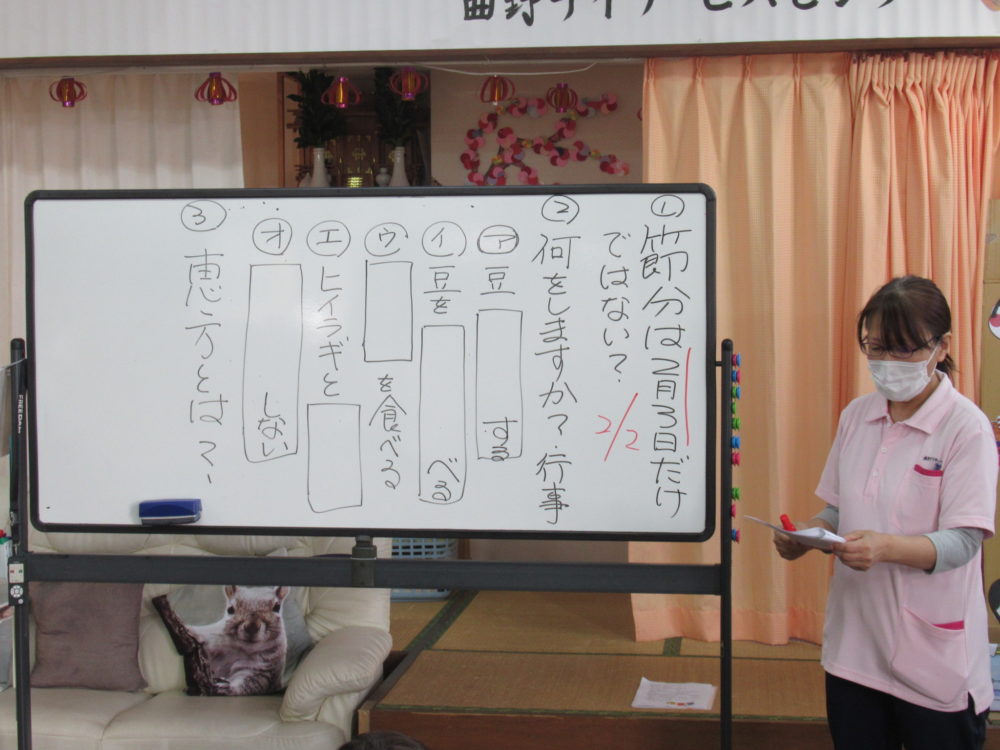 ①節分は2月3日だけ
ではない?
2/2
②何をしますか?行事
㋐豆 する
㋑豆を べる
㋒ を食べる
㋓ヒイラギと
㋔ しない
③恵方とは?